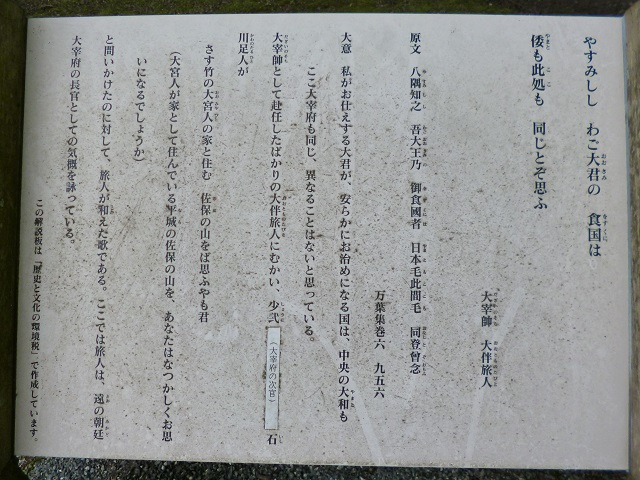 やすみしし わご大君の 食国は
倭も此処も 同じとぞ思ふ
大宰帥 大伴旅人
原文 八隅知之 吾大王乃 御食國者 日本毛此間毛 同登曾念
万葉集巻六 九五六
大意 私がお仕えする大君が、安らかにお治めになる国は、中央の大和も
ここ大宰府も同じ、異なることはないと思っている。
大宰帥として赴任したばかりの大伴旅人にむかい、少弐(大宰府の次官)石
川足人が
さす竹の大宮人の家と住む 佐保の山をば思ふやも君
(大宮人が家として住んでいる平城の佐保の山を、あなたはなつかしくお思
いになるでしょうか)
と問いかけたのに対して、旅人が和えた歌である。ここでは旅人は、遠の朝廷
大宰府の長官としての気概を詠っている。
この解説板は「歴史と文化の環境税」で作成しています。